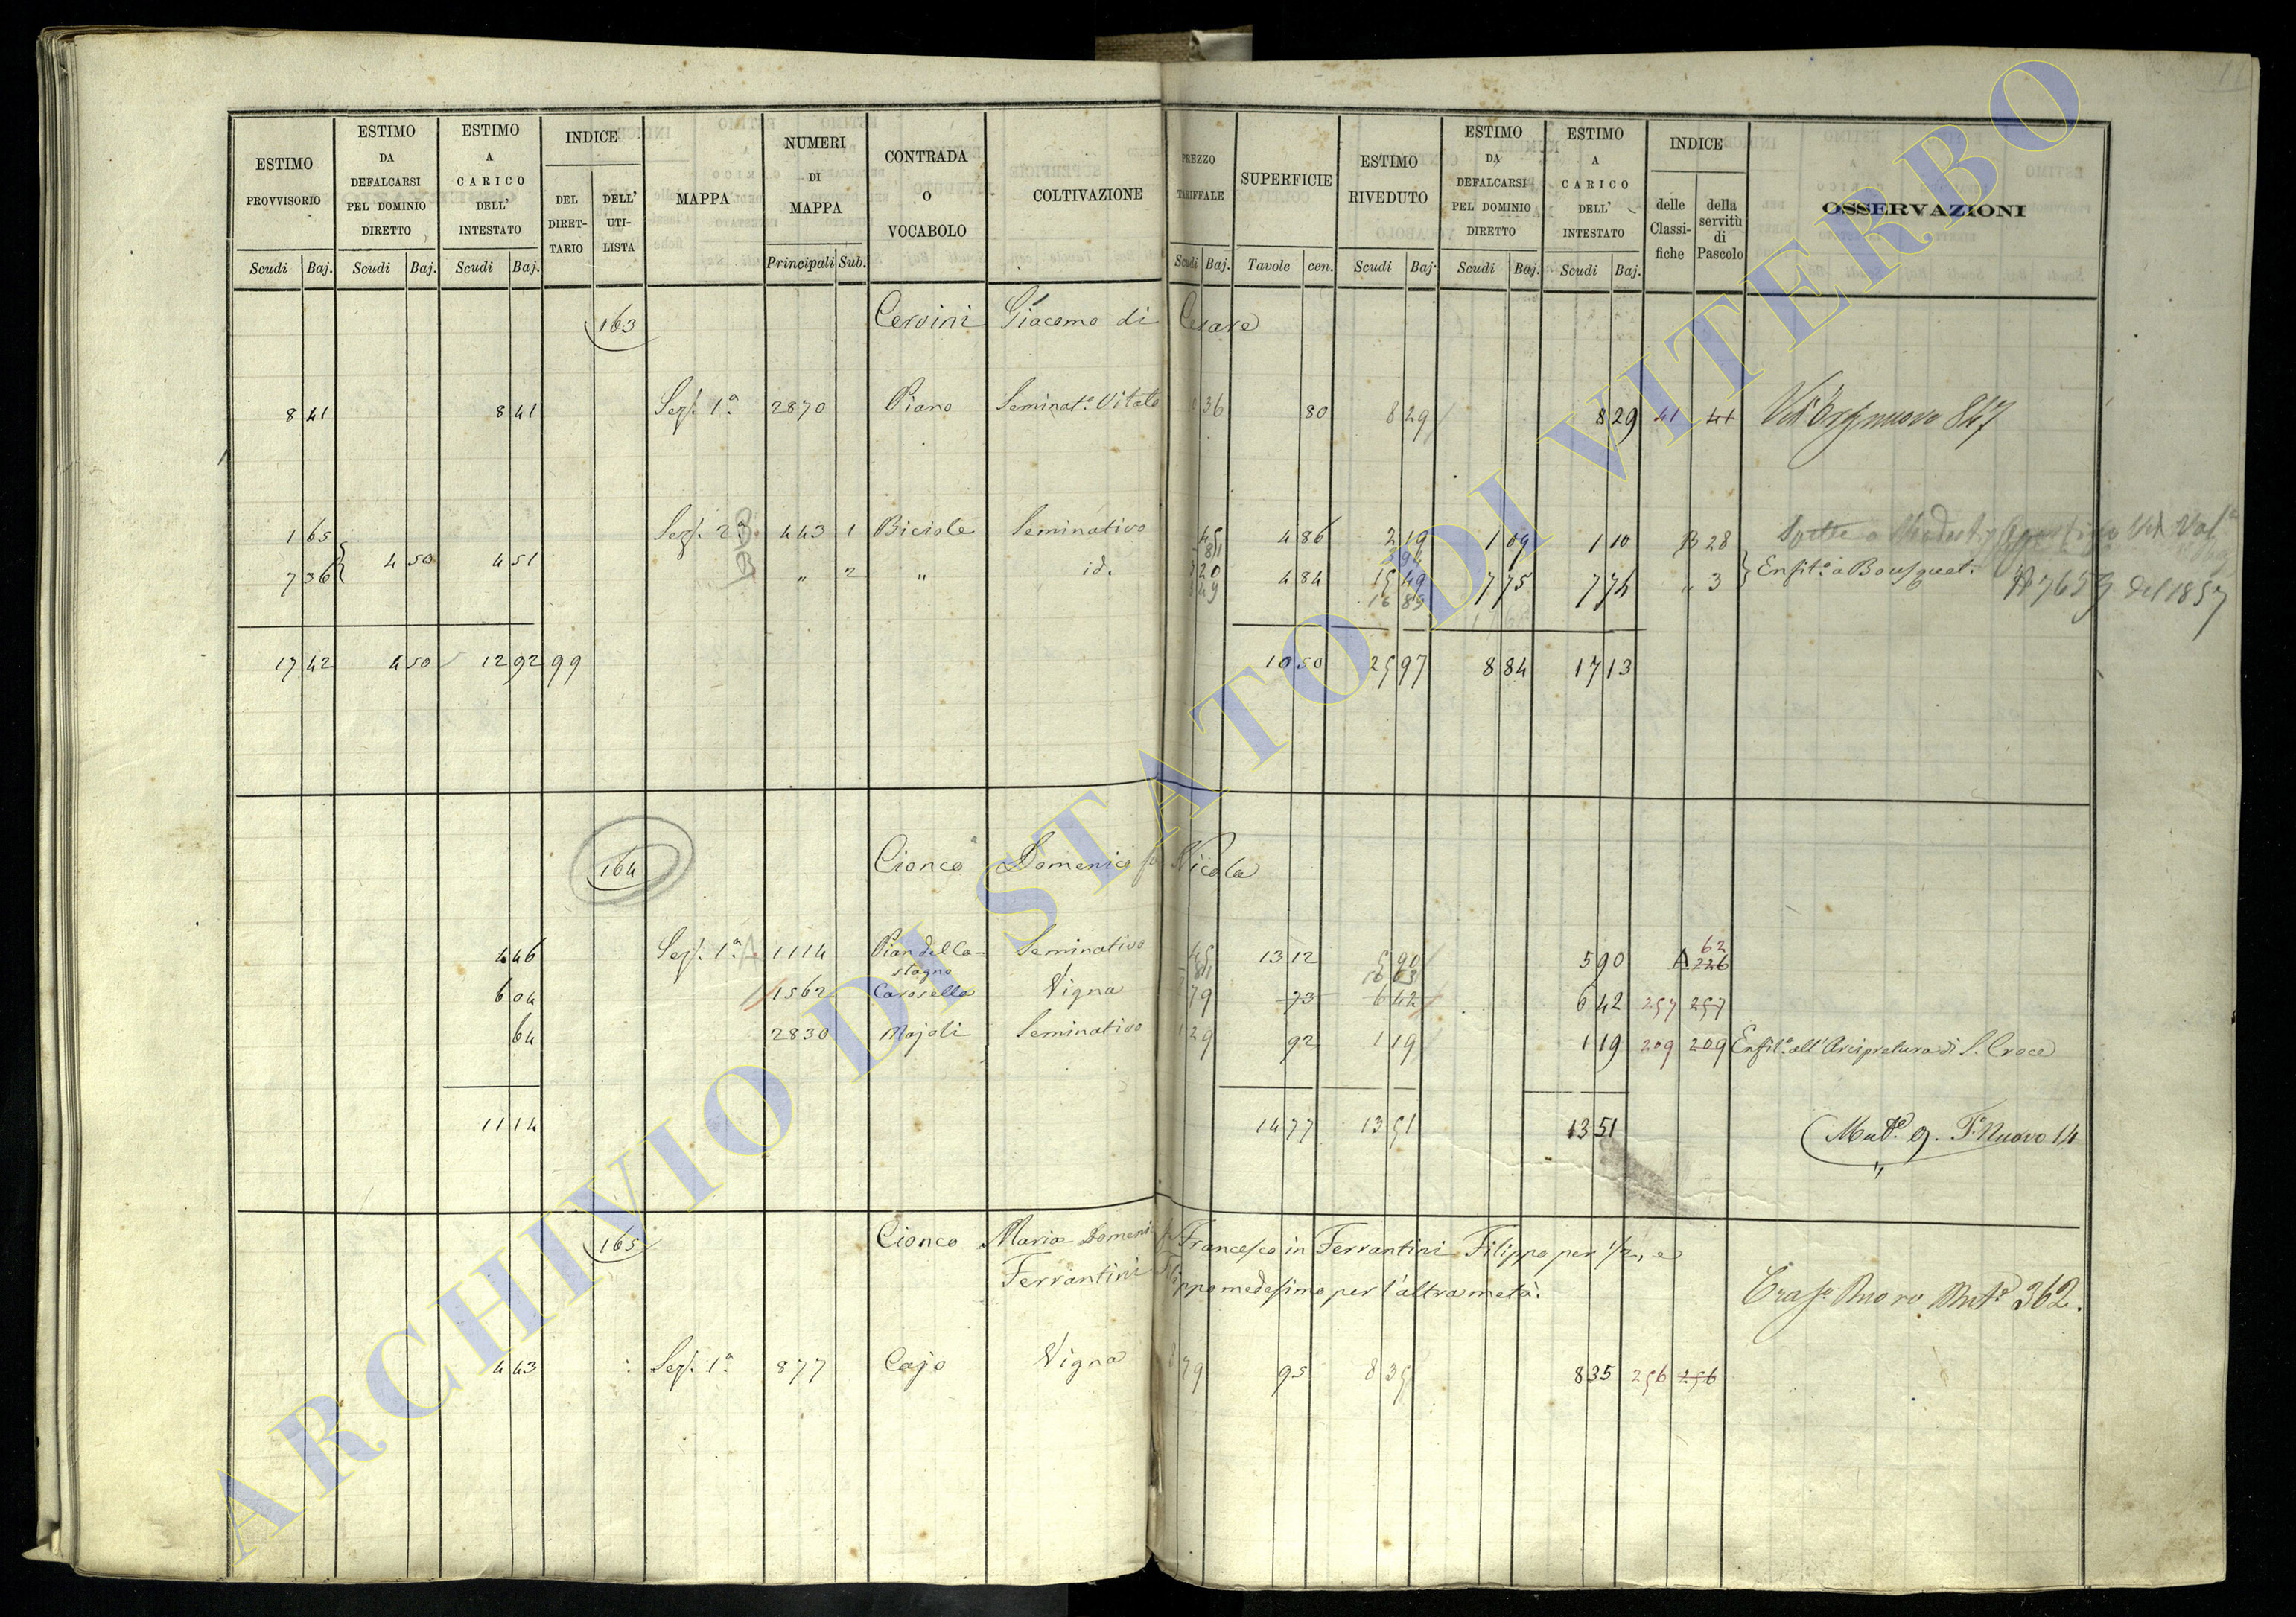 ESTIMO PROVVISORIO
ESTIMO DA DEFALCARSI PEL DOMINIO DIRETTO
ESTIMO A CARICO DELL' INTESTATO
INDICE
DEL DIRET-TARIO
DELL' UTI-LISTA
MAPPA
NUMERI DI MAPPA
CONTRADA O VOCABOLO
COLTIVAZIONE
PREZZO TARIFFALE
SUPERFICIE
ESTIMO RIVEDUTO
ESTIMO DA DEFALCARSI PEL DOMINIO DIRETTO
ESTIMO A CARICO DELL' INTESTATO
INDICE
delle Classi-fiche
della servitù di Pascolo
OSSERVAZIONI
Scudi Baj. Scudi Baj. Scudi Baj. Principali Sub. Scudi Baj. Tavole cen. Scudi Baj. Scudi Baj. Scudi Baj.
163 Cervini Giacomo di Cesare
8 41 8 41 Sez. 1ª 2870 Piano Seminatº Vitato 36 80 8 29 8 29 41 41 847
1 65 Sez. 2ª 443 1 Biciole Seminativo 45 4 86 2 19 1 09 1 10 B 28
4 50 4 51
7 36 " 2 " id. 3 20 4 84 15 49 7 75 7 74 " 3 Enfitª a Bousquet.
16 89
17 42 4 50 12 92 99 10 50 25 97 8 84 17 13
164 Cionco Domenico Nicola
4 46 Sez. 1ª 1114 Pian della stagno Seminativo 45 13 12 5 90 5 90 A 226 62
6 04 1562 Carosella Vigna 79 73 6 42 6 42 257 257
64 2830 Majoli Seminativo 1 29 92 1 19 1 19 209 209 Enfitª all'Arcipretura di S. Croce
11 14 14 77 13 51 13 51 Mutº 9. Tº Nuovo 14
165 Cionco Maria Domenica Francesco in Ferrantini Filippo per 1/2, e
Ferrantini Filippo medesimo per l'altra metà.
362.
4 43 Sez. 1ª 877 Cajo Vigna 8 79 95 8 35 8 35 256 256
ARCHIVIO DI STATO DI VITERBO